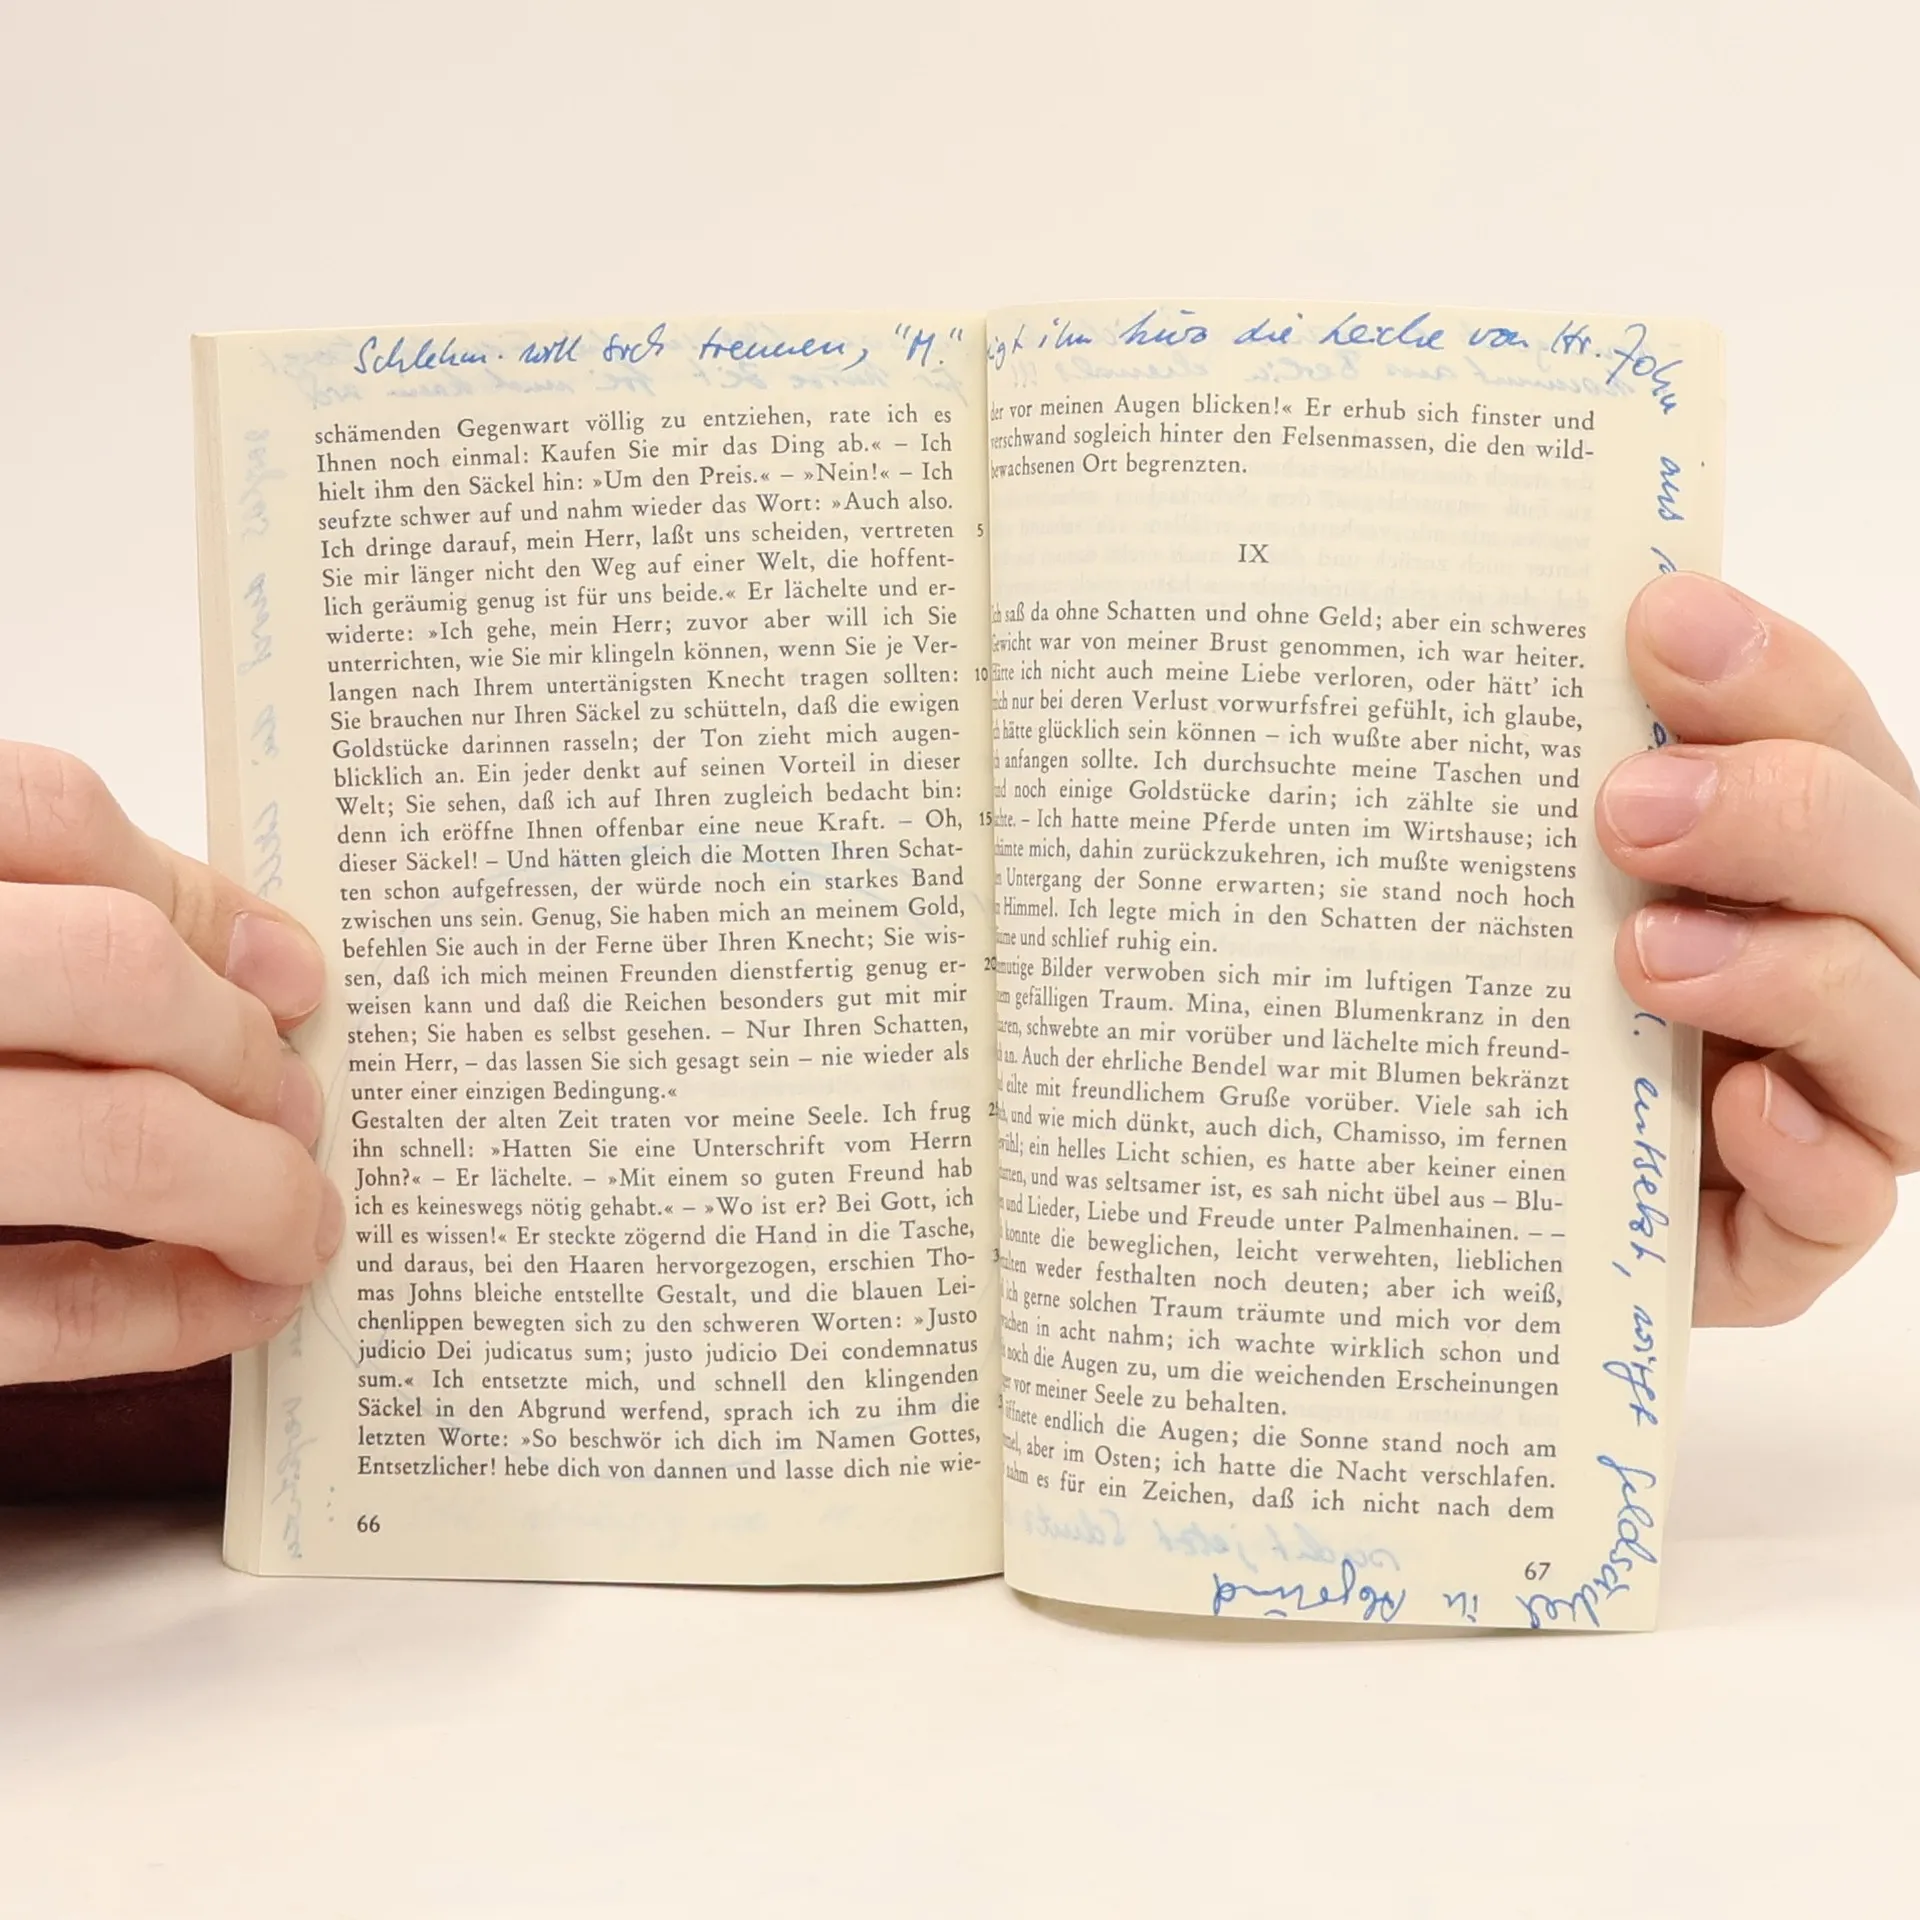 Schlehm. will sich trennen, "M."
schämenden Gegenwart völlig zu entziehen, rate ich es
Ihnen noch einmal: Kaufen Sie mir das Ding ab.« – Ich
hielt ihm den Säckel hin: »Um den Preis.« – »Nein!« – Ich
seufzte schwer auf und nahm wieder das Wort: »Auch also.
Ich dringe darauf, mein Herr, laßt uns scheiden, vertreten 5
Sie mir länger nicht den Weg auf einer Welt, die hoffent-
lich geräumig genug ist für uns beide.« Er lächelte und er-
widerte: »Ich gehe, mein Herr; zuvor aber will ich Sie
unterrichten, wie Sie mir klingeln können, wenn Sie je Ver-
langen nach Ihrem untertänigsten Knecht tragen sollten: 10
Sie brauchen nur Ihren Säckel zu schütteln, daß die ewigen
Goldstücke darinnen rasseln; der Ton zieht mich augen-
blicklich an. Ein jeder denkt auf seinen Vorteil in dieser
Welt; Sie sehen, daß ich auf Ihren zugleich bedacht bin:
denn ich eröffne Ihnen offenbar eine neue Kraft. – Oh, 15
dieser Säckel! – Und hätten gleich die Motten Ihren Schat-
ten schon aufgefressen, der würde noch ein starkes Band
zwischen uns sein. Genug, Sie haben mich an meinem Gold,
befehlen Sie auch in der Ferne über Ihren Knecht; Sie wis-
sen, daß ich mich meinen Freunden dienstfertig genug er- 20
weisen kann und daß die Reichen besonders gut mit mir
stehen; Sie haben es selbst gesehen. – Nur Ihren Schatten,
mein Herr, – das lassen Sie sich gesagt sein – nie wieder als
unter einer einzigen Bedingung.«
Gestalten der alten Zeit traten vor meine Seele. Ich frug
ihn schnell: »Hatten Sie eine Unterschrift vom Herrn
John?« – Er lächelte. – »Mit einem so guten Freund hab
ich es keineswegs nötig gehabt.« – »Wo ist er? Bei Gott, ich
will es wissen!« Er steckte zögernd die Hand in die Tasche,
und daraus, bei den Haaren hervorgezogen, erschien Tho-
mas Johns bleiche entstellte Gestalt, und die blauen Lei-
chenlippen bewegten sich zu den schweren Worten: »Justo
judicio Dei judicatus sum; justo judicio Dei condemnatus
sum.« Ich entsetzte mich, und schnell den klingenden
Säckel in den Abgrund werfend, sprach ich zu ihm die
letzten Worte: »So beschwör ich dich im Namen Gottes,
Entsetzlicher! hebe dich von dannen und lasse dich nie wie-
66
ihm kurz die Leiche von Hr. John aus
der vor meinen Augen blicken!« Er erhub sich finster und
verschwand sogleich hinter den Felsenmassen, die den wild-
bewachsenen Ort begrenzten.
IX
Ich saß da ohne Schatten und ohne Geld; aber ein schweres
Gewicht war von meiner Brust genommen, ich war heiter.
Hätte ich nicht auch meine Liebe verloren, oder hätt' ich
mich nur bei deren Verlust vorwurfsfrei gefühlt, ich glaube,
ich hätte glücklich sein können – ich wußte aber nicht, was
ich anfangen sollte. Ich durchsuchte meine Taschen und
noch einige Goldstücke darin; ich zählte sie und
– Ich hatte meine Pferde unten im Wirtshause; ich
mich, dahin zurückzukehren, ich mußte wenigstens
Untergang der Sonne erwarten; sie stand noch hoch
Himmel. Ich legte mich in den Schatten der nächsten
und schlief ruhig ein.
Bilder verwoben sich mir im luftigen Tanze zu
gefälligen Traum. Mina, einen Blumenkranz in den
schwebte an mir vorüber und lächelte mich freund-
an. Auch der ehrliche Bendel war mit Blumen bekränzt
eilte mit freundlichem Gruße vorüber. Viele sah ich
und wie mich dünkt, auch dich, Chamisso, im fernen
ein helles Licht schien, es hatte aber keiner einen
und was seltsamer ist, es sah nicht übel aus – Blu-
und Lieder, Liebe und Freude unter Palmenhainen. – –
konnte die beweglichen, leicht verwehten, lieblichen
weder festhalten noch deuten; aber ich weiß,
ich gerne solchen Traum träumte und mich vor dem
in acht nahm; ich wachte wirklich schon und
noch die Augen zu, um die weichenden Erscheinungen
vor meiner Seele zu behalten.
endlich die Augen; die Sonne stand noch am
aber im Osten; ich hatte die Nacht verschlafen.
nahm es für ein Zeichen, daß ich nicht nach dem
67
entsetzt, wirft Geldsäckel in Abgrund